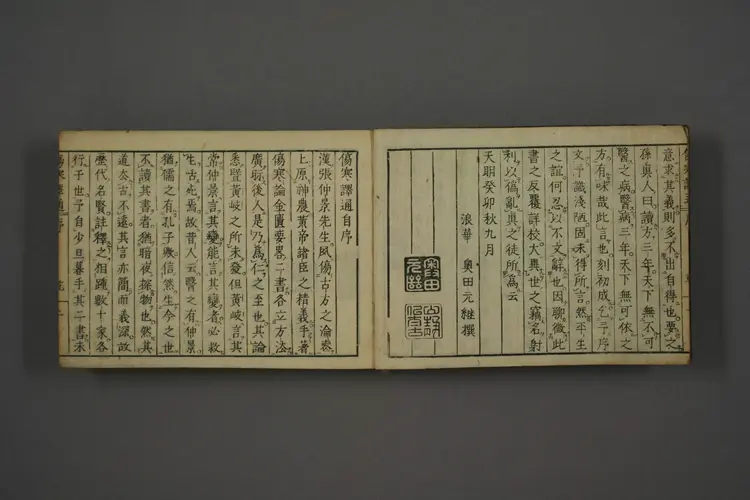 意求其義則多不出自得也要之
孫真人曰讀方三年天下無不可
醫之病醫病三年天下無可依之
方有味哉此言也刻初成乞予序
文予識淺陋固未得所言然平生
之誼何忍以不文辭也因聊徵此
書之反覆詳校大異世之藉名射
利以偽亂真之徒所為云
天明癸卯秋九月
浪華 奥田元継撰
傷寒譯通自序
漢張仲景先生夙傷古方之淪喪
上原神農黃帝諸臣之精義手著
傷寒論金匱要畧二書各立方法
廣眎後人是乃為仁之至也其論
悉暨黃岐之所未發但黃岐言其
常仲景言其變能言其變者必救
生死焉故昔人云醫之有仲景
猶儒之有孔子厥信然生今之世
不讀其書者猶暗夜探物也然其
道去古不遠其言亦簡而義深故
歷代名賢註釋之相踵數十家各
行于世予自少旦暮手其二書未
傷寒譯通 序